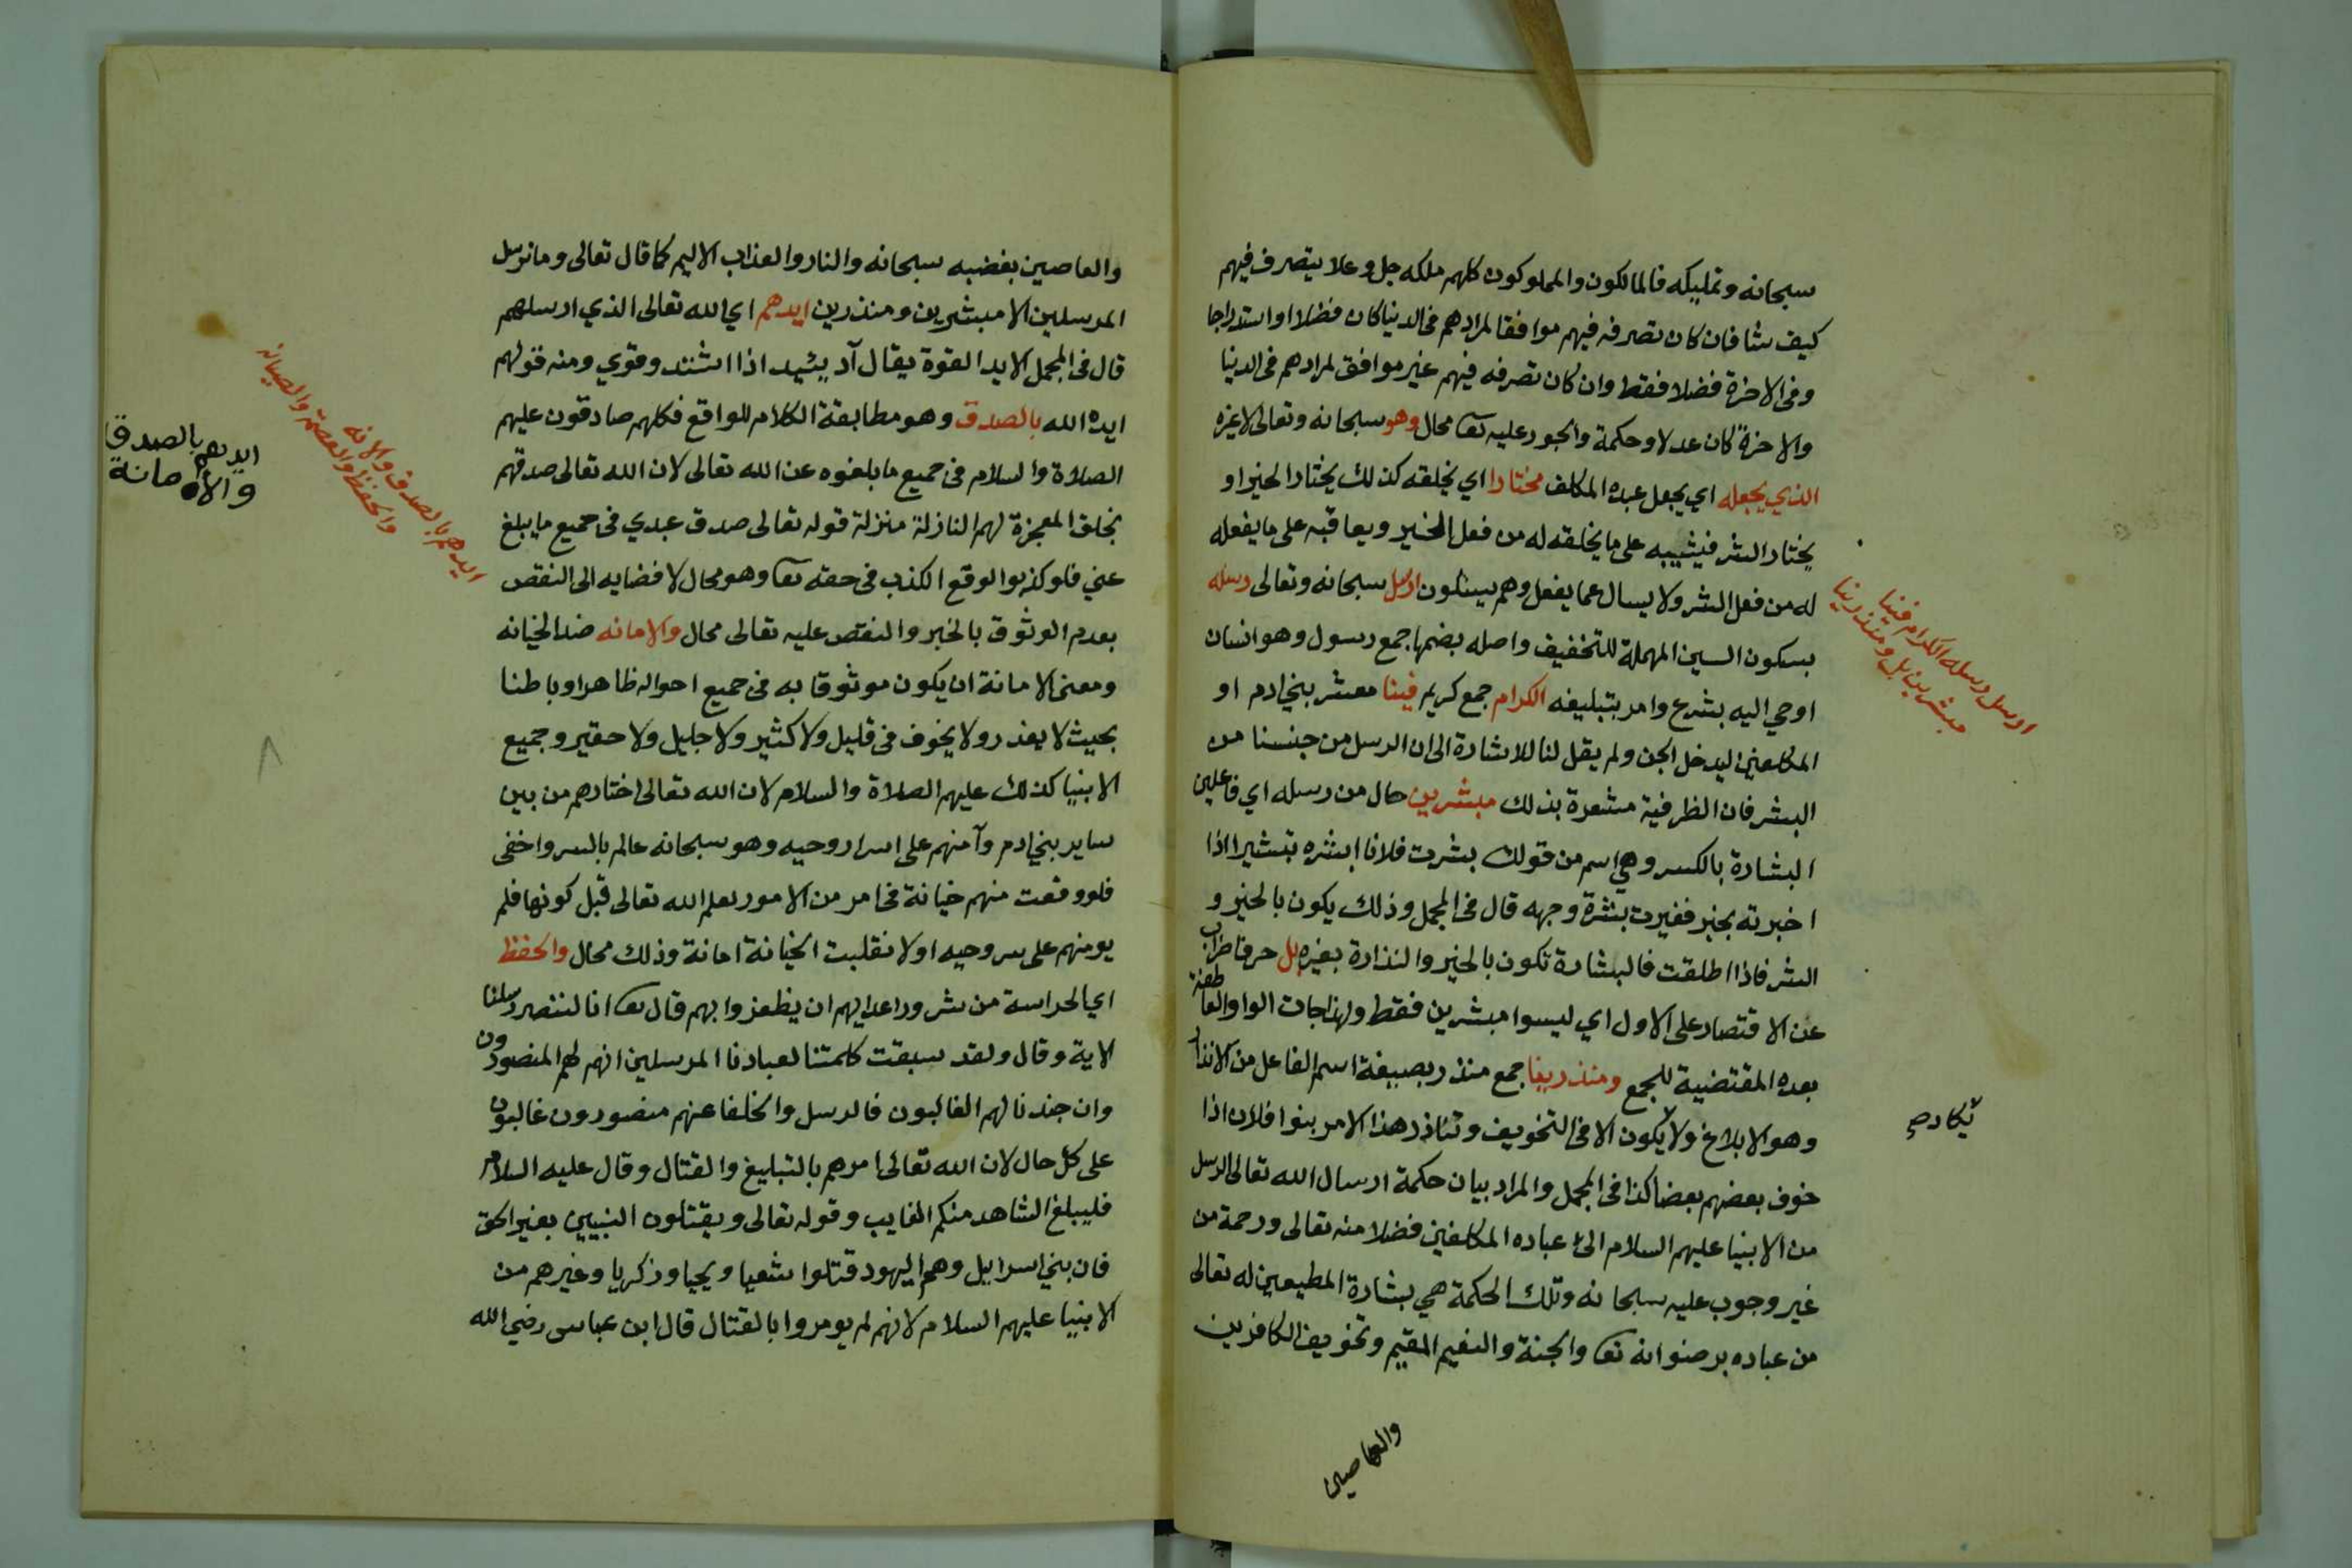 سبحانه وتمليكه فالمالكون والمملوكون كلهم ملكه جل وعلا يتصرف فيهم
كيف شا فان كان تصرفه فيهم موافقا لمرادهم في الدنيا كان فضلا او استدراجا
وفي الاخرة فضلا فقط وان كان تصرفه فيهم غير موافق لمرادهم في الدنيا
والاخرة كان عدلا وحكمة والجور عليه تعا محال وهو سبحانه وتعالى لا غيره
الذي يجعله اي يجعل عبده المكلف مختارا اي يخلقه كذلك يختار الخير او
يختار الشر فيثيبه على ما يخلقه له من فعل الخير ويعاقبه على ما يفعله
له من فعل الشر ولا يسال عما يفعل وهم يسئلون ارسل سبحانه وتعالى رسله
بسكون السين المهملة للتخفيف واصله بضمها جمع رسول وهو انسان
اوحي اليه بشرع وامر بتبليغه الكرام جمع كريم فينا معشر بني ادم او
المكلفين ليدخل الجن ولم يقل لنا للاشارة الى ان الرسل من جنسنا من
البشر فان الظرفية مشعرة بذلك مبشرين حال من رسله اي فاعلين
البشارة بالكسر وهي اسم من قولك بشرت فلانا ابشره تبشيرا اذا
اخبرته بخبر فغيرت بشرة وجهه قال في المجمل وذلك يكون بالخير و
الشر فاذا اطلقت فالبشارة تكون بالخير والنذارة بغيره بل حرف اضراب
عن الاقتصار على الاول اي ليسوا مبشرين فقط ولهذا جات الواو العاطفة
بعده المقتضية للجمع ومنذرينا جمع منذر بصيغة اسم الفاعل من الانذار
وهو الابلاغ ولا يكون الا في التخويف وتناذر هذا الامر بنوا فلان اذا
خوف بعضهم بعضا كذا في المجمل والمراد بيان حكمة ارسال الله تعالى الرسل
من الانبيا عليهم السلام الى عباده المكلفين فضلا منه تعالى ورحمة من
غير وجوب عليه سبحانه وتلك الحكمة هي بشارة المطيعين له تعالى
من عباده برضوانه تعا والجنة والنعيم المقيم وتخويف الكافرين
والعاصين
ارسل رسله الكرام فينا
مبشرين بل ومنذرينا
والعاصين بغضبه سبحانه والنار والعذاب الاليم كما قال تعالى وما نرسل
المرسلين الا مبشرين ومنذرين ايدهم اي الله تعالى الذي ارسلهم
قال في المجمل الايد القوة يقال آد يئيد اذا اشتد وقوي ومنه قولهم
ايده الله بالصدق وهو مطابقة الكلام للواقع فكلهم صادقون عليهم
الصلاة والسلام في جميع ما بلغوه عن الله تعالى لان الله تعالى صدقهم
بخلق المعجزة لهم النازلة منزلة قوله تعالى صدق عبدي في جميع ما يبلغ
عني فلو كذبوا لوقع الكذب في حقه تعا وهو محال لافضايه الى النقص
بعدم الوثوق بالخبر والنقص عليه تعالى محال والامانه ضد الخيانه
ومعنى الامانة ان يكون موثوقا به في جميع احواله ظاهرا وباطنا
بحيث لا يغدر ولا يخوف في قليل ولا كثير ولا جليل ولا حقير وجميع
الانبيا كذلك عليهم الصلاة والسلام لان الله تعالى اختارهم من بين
ساير بني ادم وآمنهم على اسرار وحيه وهو سبحانه عالم بالسر واخفى
فلو وقعت منهم خيانة في امر من الامور لعلم الله تعالى قبل كونها فلم
يومنهم على سر وحيه او لانقلبت الخيانة امانة وذلك محال والحفظ
اي الحراسة من شرور اعدايهم ان يظفروا بهم قال تعا انا لننصر رسلنا
الاية وقال ولقد سبقت كلمتنا لعبادنا المرسلين انهم لهم المنصورون
وان جندنا لهم الغالبون فالرسل والخلفا عنهم منصورون غالبون
على كل حال لان الله تعالى امرهم بالتبليغ والقتال وقال عليه السلام
فليبلغ الشاهد منكم الغايب وقوله تعالى ويقتلون النبيين بغير الحق
فان بني اسرايل وهم اليهود قتلوا شعيا ويحيا وزكريا وغيرهم من
الانبيا عليهم السلام لانهم لم يومروا بالقتال قال ابن عباس رضي الله
ايدهم بالصدق والامانه
والحفظ والعصمة والصيانه
ايدهم بالصدق
والامانة